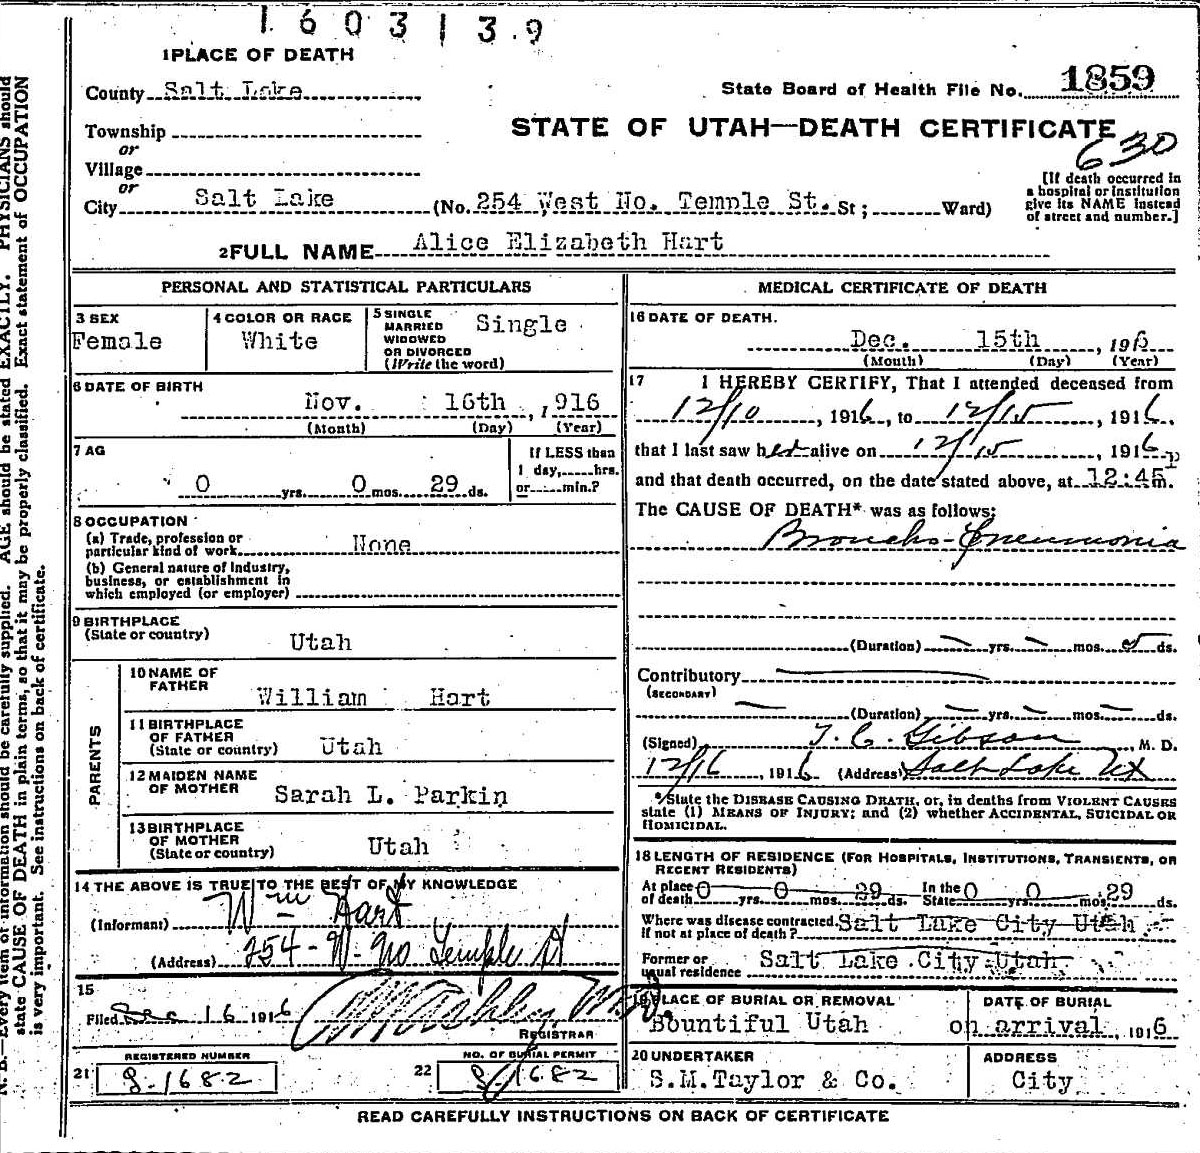 1 6 0 3 1 3 . 9
1 PLACE OF DEATH
County Salt Lake
State Board of Health File No. 1859
Township
or
STATE OF UTAH—DEATH CERTIFICATE
630
Village
or
City Salt Lake (No. 254 West No. Temple St. St ; Ward)
[If death occurred in
a hospital or institution
give its NAME instead
of street and number.]
2 FULL NAME Alice Elizabeth Hart
PERSONAL AND STATISTICAL PARTICULARS
3 SEX
Female
4 COLOR OR RACE
White
5 SINGLE
MARRIED
WIDOWED
OR DIVORCED
(Write the word)
Single
6 DATE OF BIRTH
Nov. 16th , 1916
(Month) (Day) (Year)
7 AG
0 yrs. 0 mos. 29 ds.
If LESS than
1 day, hrs.
or min.?
8 OCCUPATION
(a) Trade, profession or
particular kind of work None
(b) General nature of industry,
business, or establishment in
which employed (or employer)
9 BIRTHPLACE
(State or country)
Utah
PARENTS
10 NAME OF
FATHER
William Hart
11 BIRTHPLACE
OF FATHER
(State or country) Utah
12 MAIDEN NAME
OF MOTHER
Sarah L. Parkin
13 BIRTHPLACE
OF MOTHER
(State or country) Utah
14 THE ABOVE IS TRUE TO THE BEST OF MY KNOWLEDGE
(Informant) Wm Hart
(Address) 254 - W. No. Temple St
15
Filed Dec 16 1916
REGISTRAR
REGISTERED NUMBER
21 8-1682
NO. OF BURIAL PERMIT
22 8-1682
MEDICAL CERTIFICATE OF DEATH
16 DATE OF DEATH.
Dec. 15th , 1916
(Month) (Day) (Year)
17 I HEREBY CERTIFY, That I attended deceased from
12/10 , 1916, to 12/15 , 1916,
that I last saw her alive on 12/15 , 1916,
and that death occurred, on the date stated above, at 12:45 P m.
The CAUSE OF DEATH* was as follows:
Broncho-Pneumonia
(Duration) — yrs. — mos. 5 ds.
Contributory
(SECONDARY)
(Duration) — yrs. — mos. — ds.
(Signed) T. C. Gibson , M. D.
12/16 , 1916 (Address) Salt Lake Ut
*State the DISEASE CAUSING DEATH, or, in deaths from VIOLENT CAUSES
state (1) MEANS OF INJURY; and (2) whether ACCIDENTAL, SUICIDAL OR
HOMICIDAL.
18 LENGTH OF RESIDENCE (FOR HOSPITALS, INSTITUTIONS, TRANSIENTS, OR
RECENT RESIDENTS)
At place
of death 0 yrs. 0 mos. 29 ds.
In the
State 0 yrs. 0 mos. 29
Where was disease contracted,
If not at place of death? Salt Lake City Utah
Former or
usual residence Salt Lake City Utah
19 PLACE OF BURIAL OR REMOVAL
Bountiful Utah
DATE OF BURIAL
on arrival 1916
20 UNDERTAKER
S.M.Taylor & Co.
ADDRESS
City
READ CAREFULLY INSTRUCTIONS ON BACK OF CERTIFICATE
N. B.—Every item of information should be carefully supplied. AGE should be stated EXACTLY. PHYSICIANS should
state CAUSE OF DEATH in plain terms, so that it may be properly classified. Exact statement of OCCUPATION
is very important. See instructions on back of certificate.